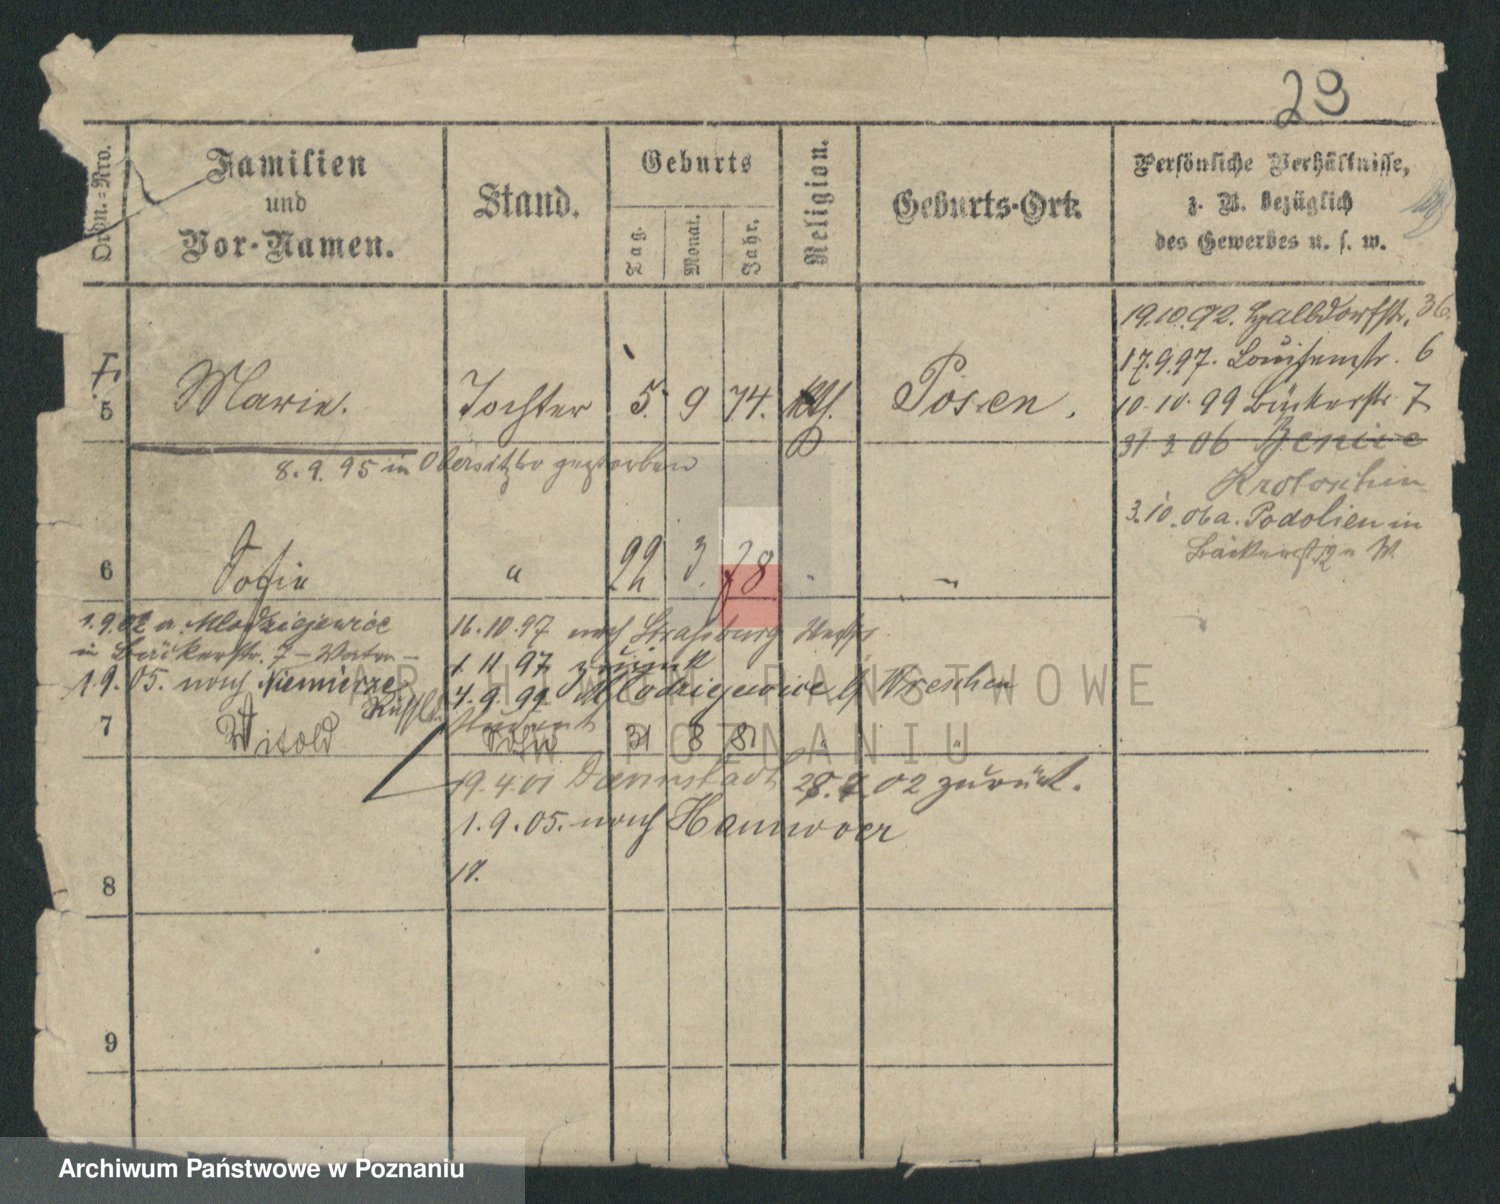 23
Ordn.=Nro.
Familien
und
Vor-Namen.
Stand.
Geburts
Tag.
Monat.
Jahr.
Religion.
Geburts-Ort.
Persönliche Verhältnisse,
z. B. bezüglich
des Gewerbes u. s. w.
19.10.92. Halbdorfstr. 36.
17.9.97. Louisenstr. 6
10.10.99 Bäckerstr. 7
5 Marie. Tochter 5. 9 74. kth. Posen.
31 3 06 Benice
Krotoschin
8.9.95 in Obersitzko gestorben
3.10.06 a. Podolien in
Bäckerstr
6 Sofie " 22 3. 78 " "
1.9.02 a. Mlodziejewice
in Bäckerstr. 7
1.9.05. nach Niemierze
Rußld.
16.10.97 nach Strasburg Westpr.
1.11.97 zurück
4.9.99 Mlodziejewice b/ Wreschen
7 Witold Student
Sohn 31 8 81 " "
19.4.01 Darmstadt 28. 02 zurück.
1.9.05. nach Hannover
8
9
ARCHIWUM PAŃSTWOWE
W POZNANIU
Archiwum Państwowe w Poznaniu